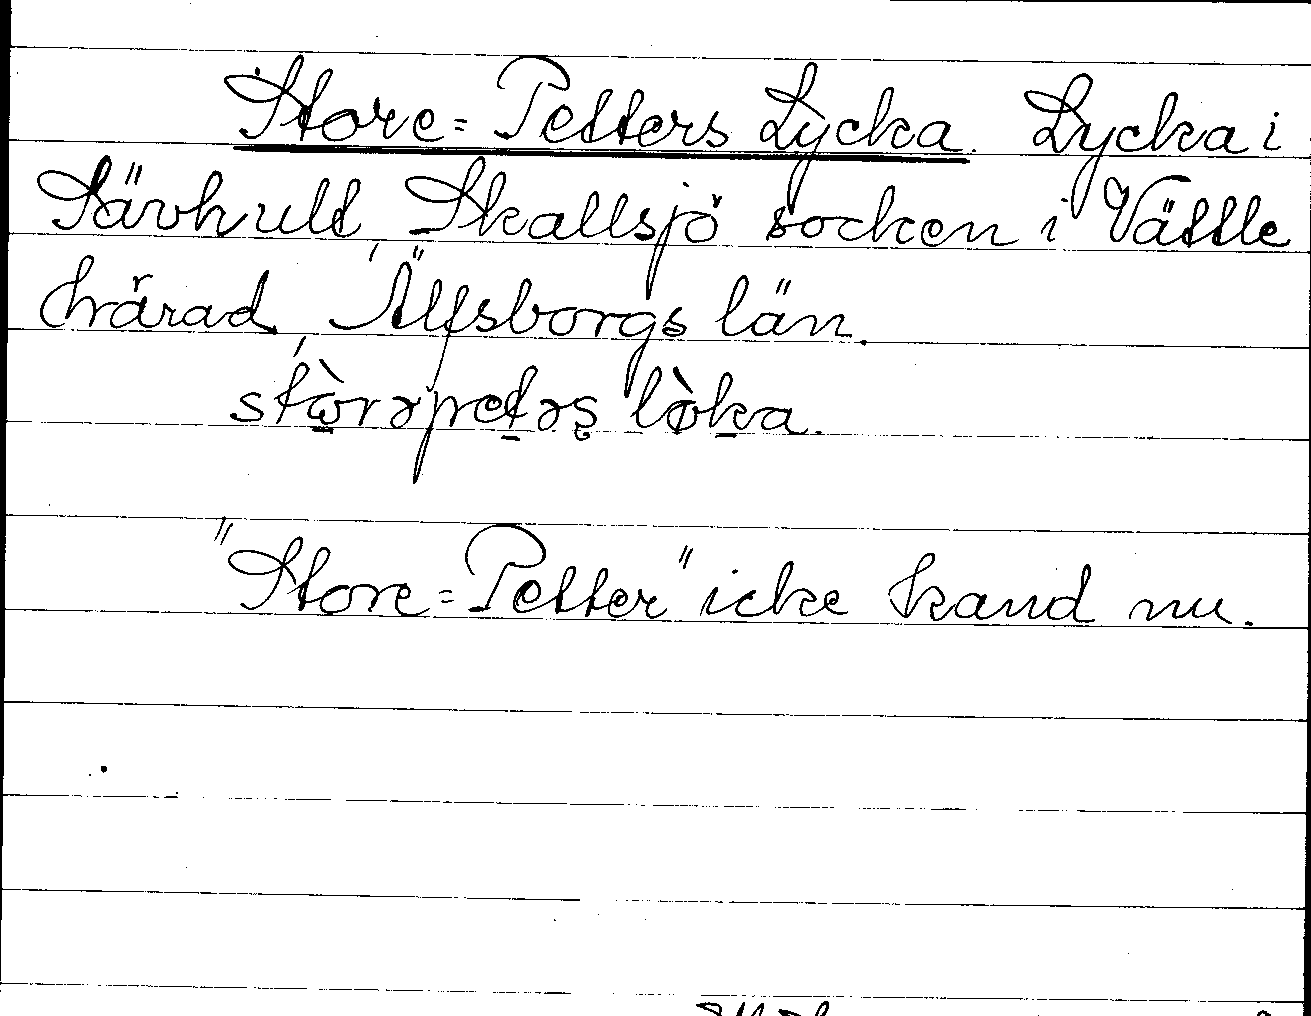 Store=Petters Lycka. Lycka i
Sävhult, Skallsjö socken i Vättle
härad, Älfsborgs län.
stòrəpetəș lòka.
"Store=Petter" icke känd nu.